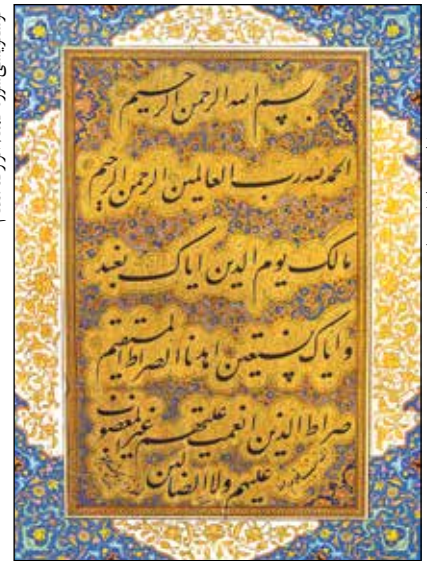 بسم الله الرحمن الرحیم
الحمدلله رب العالمین الرحمن الرحیم
مالک یوم الدین ایاک نعبد
و ایاک نستعین اهدنا الصراط المستقیم
صراط الذین انعمت علیهم غیر المغضوب
علیهم ولا الضالین